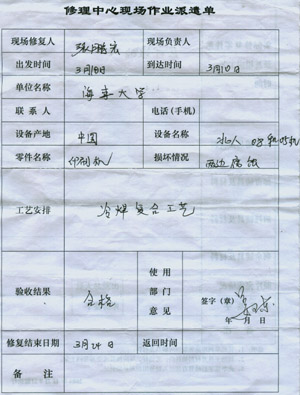 修理中心现场作业派遣单
现场修复人 现场负责人
出发时间 3月8日 到达时间 3月10日
单位名称 海事大学
联系人 电话(手机)
设备产地 中国 设备名称
零件名称 印刷机 损坏情况 两边腐蚀
工艺安排 冷焊复合工艺
验收结果 合格 使用部门意见 签字(章)
年 月 日
修复结束日期 3月24日 返回时间
备注